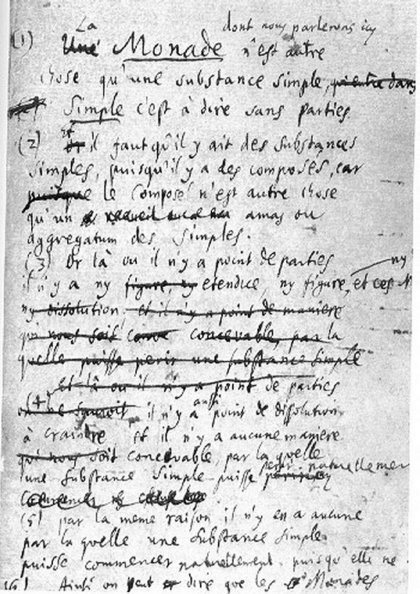 La dont nous parlerons icy
(1) Une Monade n'est autre
chose qu'une substance simple, qui entre dans
Simple c'est à dire sans parties
(2) et il faut qu'il y ait des substances
simples, puisqu'il y a des composés, car
puisque le composé n'est autre chose
qu'un amas ou
aggregatum des simples.
(3) Or là ou il n'y a point de parties ny
il n'y a ny figure, ny etendue, ny figure, et
ny dissolution. et il n'y a point de maniere
qui nous soit concevable, par la
quelle puisse perir une substance simple
Et là ou il n'y a point de parties
(4) aussi
il n'y a point de dissolution
à craindre et il n'y a aucune maniere
qui nous soit concevable, par la quelle
une substance simple puisse perir naturellement
(5) par la meme raison il n'y en a aucune
par la quelle une substance simple
puisse commencer naturellement, puisqu'elle ne
(6) Ainsi on peut dire que les Monades